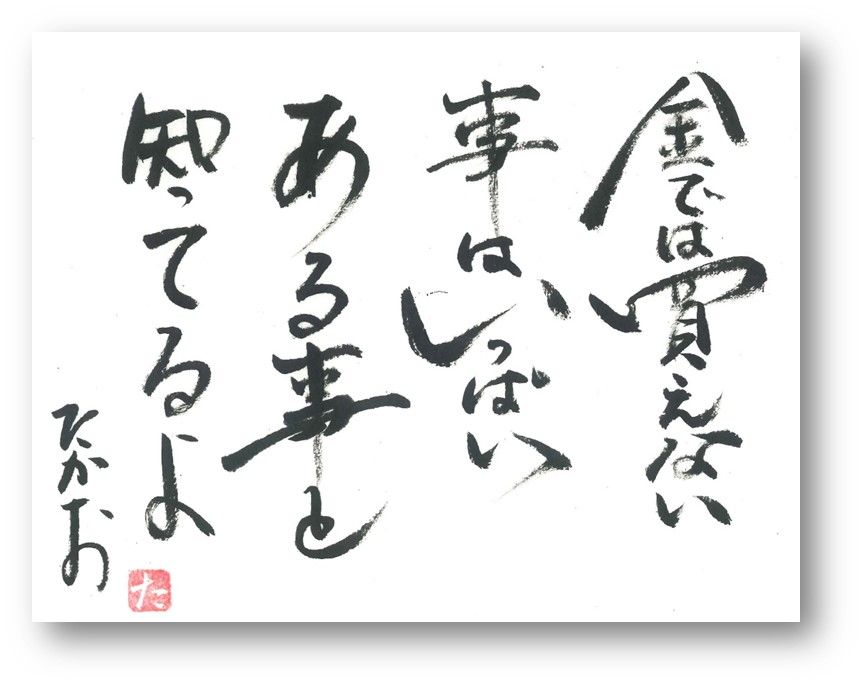 金では買えない
事はいっぱい
ある事も
知ってるよ
たかお
た